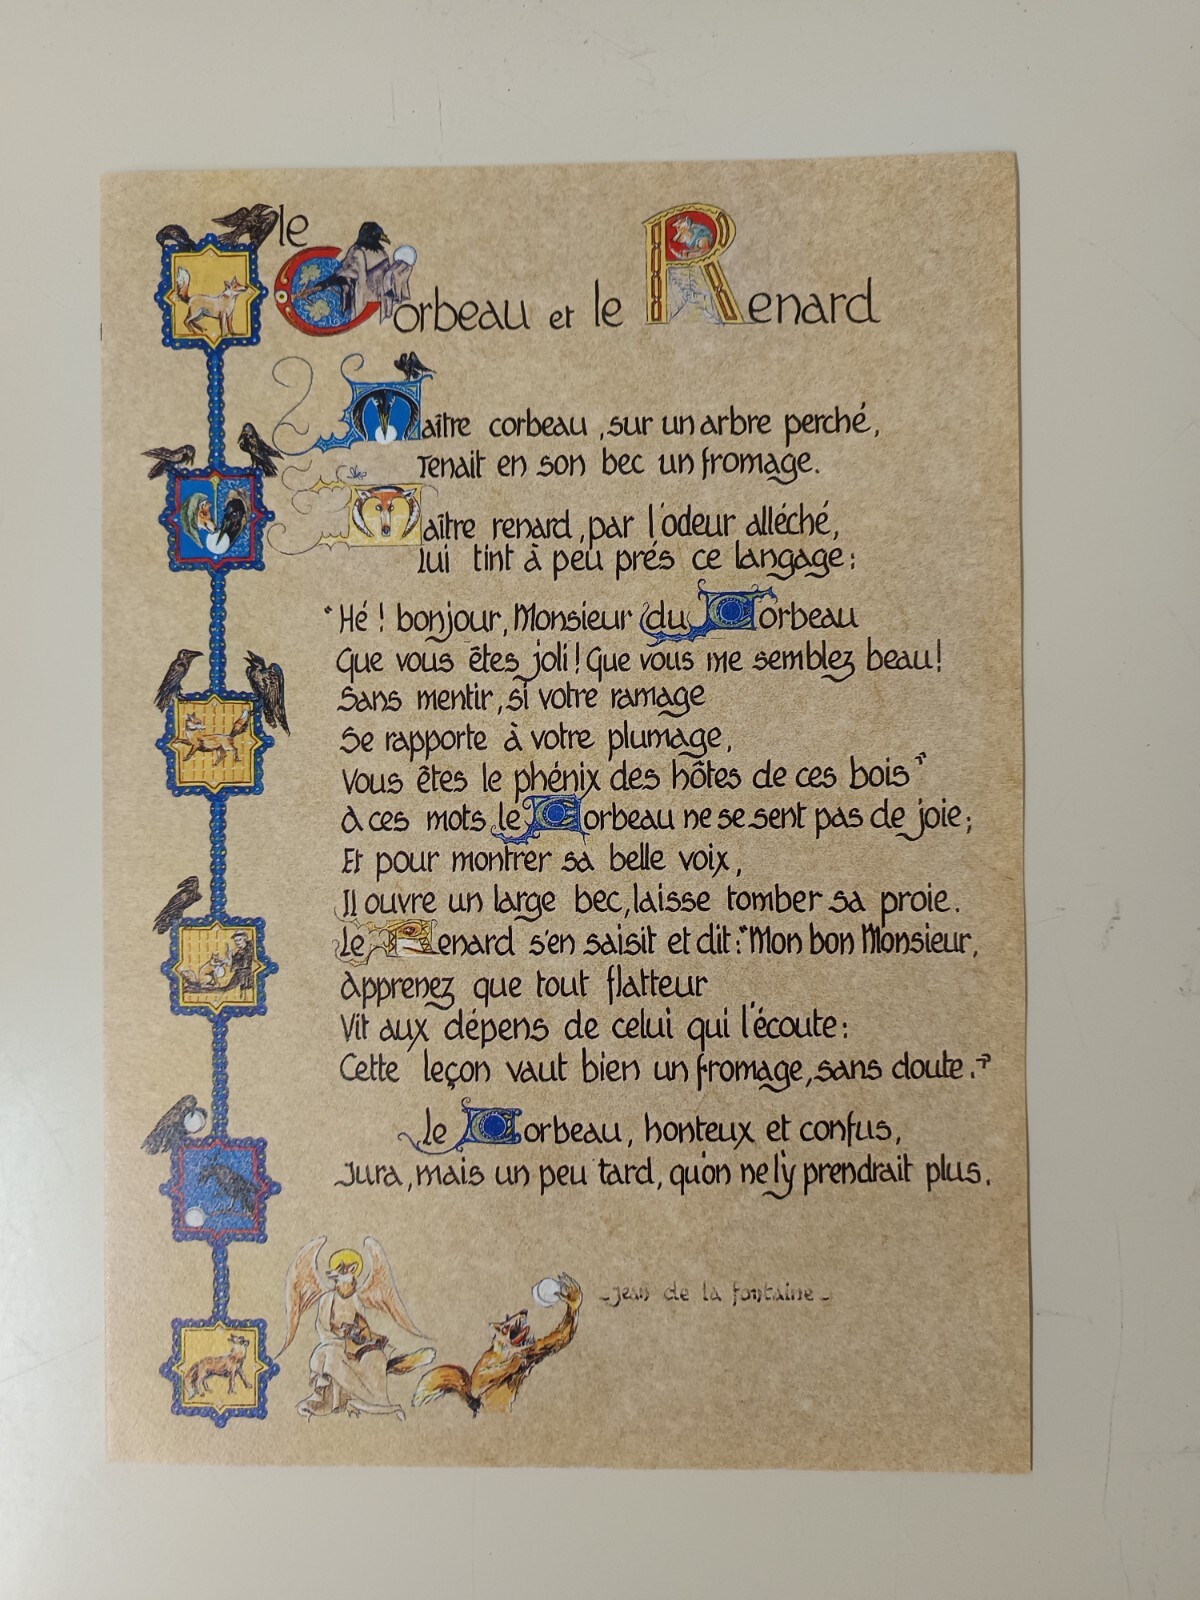 le
Corbeau et le Renard
Maître corbeau, sur un arbre perché,
Tenait en son bec un fromage.
Maître renard, par l'odeur alléché,
lui tint à peu prés ce langage:
"Hé! bonjour, Monsieur du Corbeau
Que vous êtes joli! Que vous me semblez beau!
Sans mentir, si votre ramage
Se rapporte à votre plumage,
Vous êtes le phénix des hôtes de ces bois"
A ces mots le Corbeau ne se sent pas de joie;
Et pour montrer sa belle voix,
Il ouvre un large bec, laisse tomber sa proie.
Le Renard s'en saisit et dit: "Mon bon Monsieur,
Apprenez que tout flatteur
Vit aux dépens de celui qui l'écoute:
Cette leçon vaut bien un fromage, sans doute."
Le Corbeau, honteux et confus,
Jura, mais un peu tard, qu'on ne l'y prendrait plus.
-Jean de la fontaine-